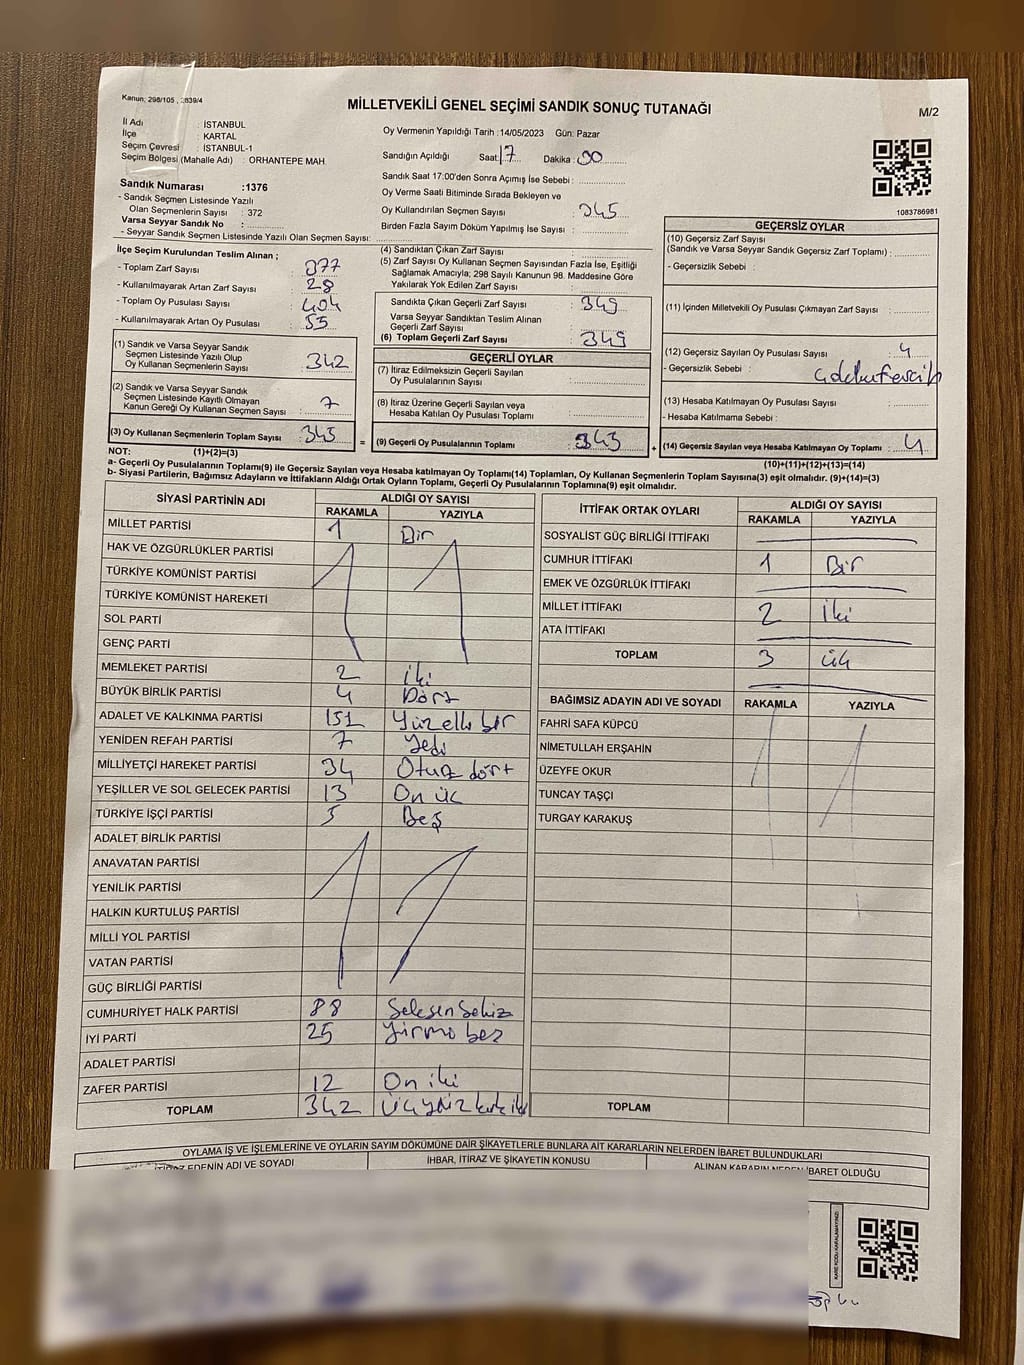 Kanun: 298/105 , 2839/4
MİLLETVEKİLİ GENEL SEÇİMİ SANDIK SONUÇ TUTANAĞI
M/2
İl Adı : İSTANBUL
İlçe : KARTAL
Seçim Çevresi : İSTANBUL-1
Seçim Bölgesi (Mahalle Adı) : ORHANTEPE MAH.
Oy Vermenin Yapıldığı Tarih :14/05/2023 Gün: Pazar
Sandığın Açıldığı Saat: 17 Dakika: 00
Sandık Saat 17:00'den Sonra Açımış İse Sebebi :
Oy Verme Saati Bitiminde Sırada Bekleyen ve
Oy Kullandırılan Seçmen Sayısı : 345
Birden Fazla Sayım Döküm Yapılmış İse Sayısı :
1083786981
Sandık Numarası :1376
- Sandık Seçmen Listesinde Yazılı
Olan Seçmenlerin Sayısı : 372
Varsa Seyyar Sandık No :
- Seyyar Sandık Seçmen Listesinde Yazılı Olan Seçmen Sayısı:
İlçe Seçim Kurulundan Teslim Alınan ;
- Toplam Zarf Sayısı : 377
- Kullanılmayarak Artan Zarf Sayısı : 28
- Toplam Oy Pusulası Sayısı : 404
- Kullanılmayarak Artan Oy Pusulası : 55
(1) Sandık ve Varsa Seyyar Sandık
Seçmen Listesinde Yazılı Olup
Oy Kullanan Seçmenlerin Sayısı : 342
(2) Sandık ve Varsa Seyyar Sandık
Seçmen Listesinde Kayıtlı Olmayan
Kanun Gereği Oy Kullanan Seçmen Sayısı : 7
(3) Oy Kullanan Seçmenlerin Toplam Sayısı : 345
(4) Sandıktan Çıkan Zarf Sayısı :
(5) Zarf Sayısı Oy Kullanan Seçmen Sayısından Fazla İse, Eşitliği
Sağlamak Amacıyla; 298 Sayılı Kanunun 98. Maddesine Göre
Yakılarak Yok Edilen Zarf Sayısı :
Sandıkta Çıkan Geçerli Zarf Sayısı : 349
Varsa Seyyar Sandıktan Teslim Alınan
Geçerli Zarf Sayısı :
(6) Toplam Geçerli Zarf Sayısı : 349
GEÇERLİ OYLAR
(7) İtiraz Edilmeksizin Geçerli Sayılan
Oy Pusulalarının Sayısı :
(8) İtiraz Üzerine Geçerli Sayılan veya
Hesaba Katılan Oy Pusulası Toplamı :
= (9) Geçerli Oy Pusulalarının Toplamı : 343 +
GEÇERSİZ OYLAR
(10) Geçersiz Zarf Sayısı
(Sandık ve Varsa Seyyar Sandık Geçersiz Zarf Toplamı) :
- Geçersizlik Sebebi :
(11) İçinden Milletvekili Oy Pusulası Çıkmayan Zarf Sayısı :
(12) Geçersiz Sayılan Oy Pusulası Sayısı : 4
- Geçersizlik Sebebi :
(13) Hesaba Katılmayan Oy Pusulası Sayısı :
- Hesaba Katılmama Sebebi :
(14) Geçersiz Sayılan veya Hesaba Katılmayan Oy Toplamı : 4
NOT: (1)+(2)=(3)
(10)+(11)+(12)+(13)=(14)
a- Geçerli Oy Pusulalarının Toplamı(9) ile Geçersiz Sayılan veya Hesaba katılmayan Oy Toplamı(14) Toplamları, Oy Kullanan Seçmenlerin Toplam Sayısına(3) eşit olmalıdır. (9)+(14)=(3)
b- Siyasi Partilerin, Bağımsız Adayların ve İttifakların Aldığı Ortak Oyların Toplamı, Geçerli Oy Pusulalarının Toplamına(9) eşit olmalıdır.
SİYASİ PARTİNİN ADI ALDIĞI OY SAYISI
RAKAMLA YAZIYLA
MİLLET PARTİSİ 1 Bir
HAK VE ÖZGÜRLÜKLER PARTİSİ
TÜRKİYE KOMÜNİST PARTİSİ
TÜRKİYE KOMÜNİST HAREKETİ
SOL PARTİ
GENÇ PARTİ
MEMLEKET PARTİSİ 2 iki
BÜYÜK BİRLİK PARTİSİ 4 Dört
ADALET VE KALKINMA PARTİSİ 151 Yüzelli bir
YENİDEN REFAH PARTİSİ 7 Yedi
MİLLİYETÇİ HAREKET PARTİSİ 34 Otuz dört
YEŞİLLER VE SOL GELECEK PARTİSİ 13 On üç
TÜRKİYE İŞÇİ PARTİSİ 5 Beş
ADALET BİRLİK PARTİSİ
ANAVATAN PARTİSİ
YENİLİK PARTİSİ
HALKIN KURTULUŞ PARTİSİ
MİLLİ YOL PARTİSİ
VATAN PARTİSİ
GÜÇ BİRLİĞİ PARTİSİ
CUMHURİYET HALK PARTİSİ 88 Seksen Sekiz
İYİ PARTİ 25 Yirmi beş
ADALET PARTİSİ
ZAFER PARTİSİ 12 On iki
TOPLAM 342 Üçyüz kırk iki
İTTİFAK ORTAK OYLARI ALDIĞI OY SAYISI
RAKAMLA YAZIYLA
SOSYALİST GÜÇ BİRLİĞİ İTTİFAKI
CUMHUR İTTİFAKI 1 Bir
EMEK VE ÖZGÜRLÜK İTTİFAKI
MİLLET İTTİFAKI 2 İki
ATA İTTİFAKI
TOPLAM 3 üç
BAĞIMSIZ ADAYIN ADI VE SOYADI RAKAMLA YAZIYLA
FAHRİ SAFA KÜPCÜ
NİMETULLAH ERŞAHİN
ÜZEYFE OKUR
TUNCAY TAŞÇI
TURGAY KARAKUŞ
TOPLAM
OYLAMA İŞ VE İŞLEMLERİNE VE OYLARIN SAYIM DÖKÜMÜNE DAİR ŞİKAYETLERLE BUNLARA AİT KARARLARIN NELERDEN İBARET BULUNDUKLARI
EDENİN ADI VE SOYADI İHBAR, İTİRAZ VE ŞİKAYETİN KONUSU ALINAN KARARIN NEDEN İBARET OLDUĞU